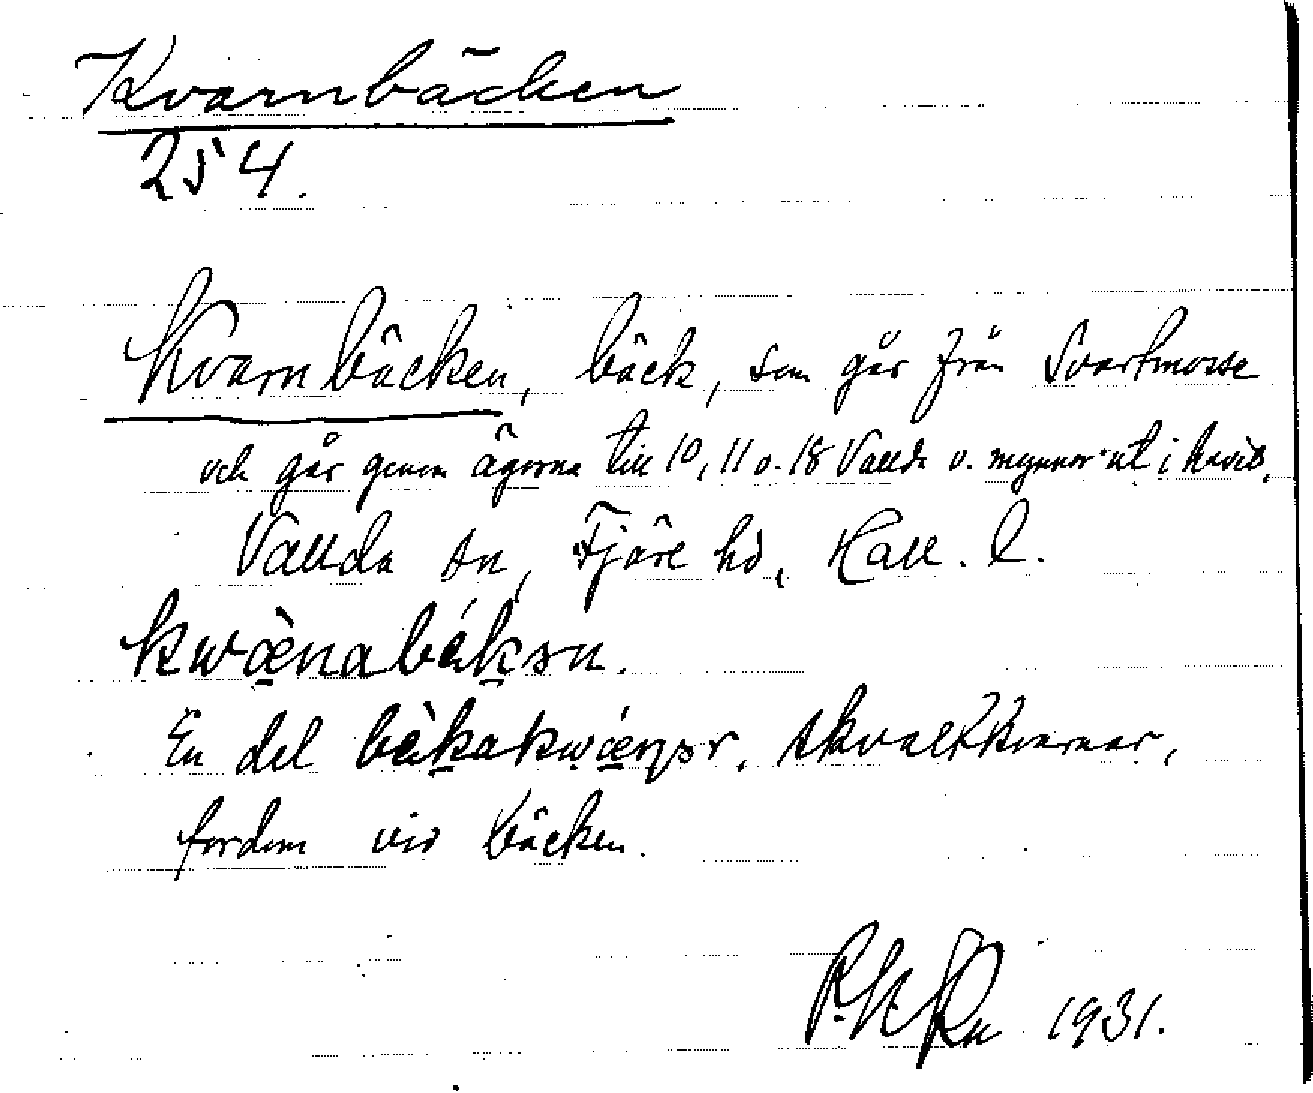 Kvarnbäcken
254.
Kvarnbäcken, bäck, som går från Svartmosse
och går genom ägorna till 10, 11 o. 18 Vallda o. mynnar ut i havet.
Vallda sn, Fjäre hd, Hall. l.
kwæ̀nabǽkən.
En del bæ̀kakwǽṇər, skvaltkvarnar,
fordom vid bäcken.
1931.